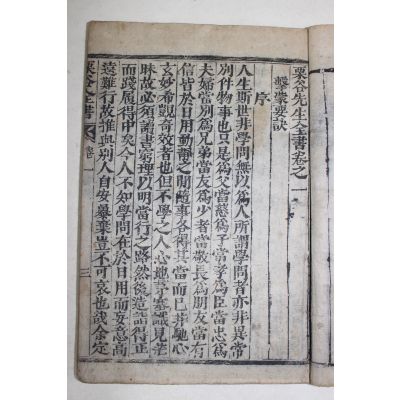 栗谷先生全書卷之一
擊蒙要訣
序
人生斯世非學問無以爲人所謂學問者亦非異常
別件物事也只是爲父當慈爲子當孝爲臣當忠爲
夫婦當別爲兄弟當友爲少者當敬長爲朋友當有
信皆於日用動靜之間隨事各得其當而已非馳心
玄妙希覬奇效者也但不學之人心地茅塞識見茫
昧故必須讀書窮理以明當行之路然後造詣得正
而踐履得中矣今人不知學問在於日用而妄意高
遠難行故推與別人自安暴棄豈不可哀也哉余定
栗谷全書 卷一
三